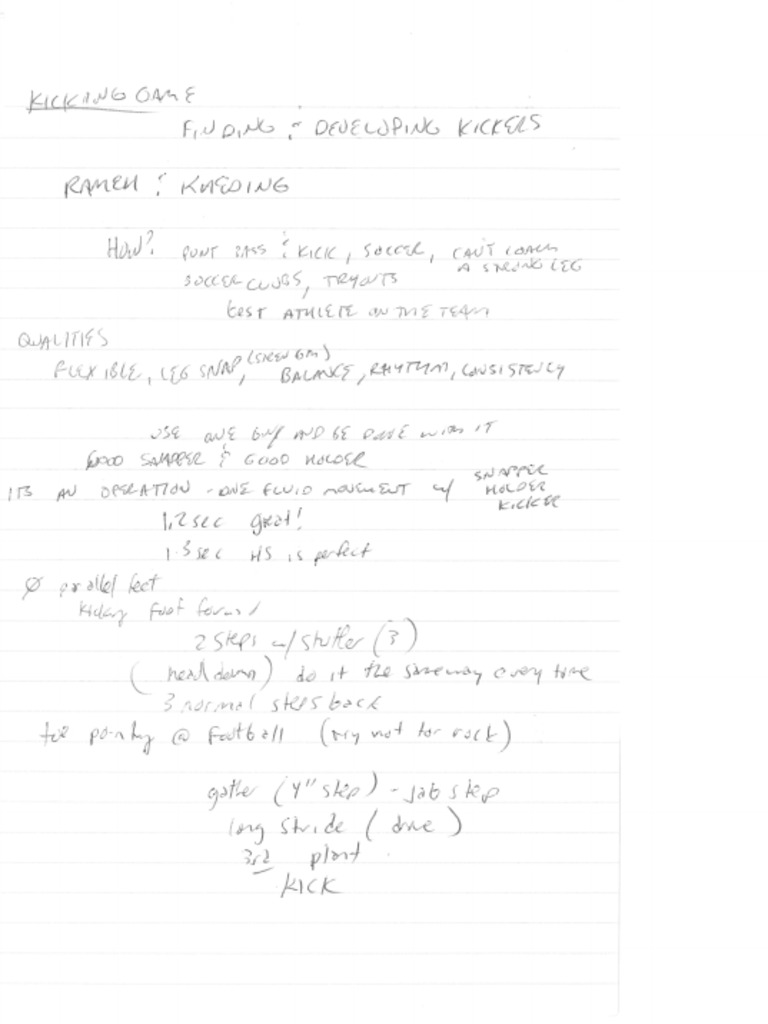 KICKING GAME
FINDING & DEVELOPING KICKERS
RAMEH & KAEDING
HOW? PUNT PASS & KICK, SOCCER, CAN'T COACH
A STRONG LEG
SOCCER CLUBS, TRYOUTS
test ATHLETE ON THE TEAM
QUALITIES
FLEXIBLE, LEG SNAP, (STRENGTH) BALANCE, RHYTHM, CONSISTENCY
USE ONE GUY AND BE DONE WITH IT
GOOD SNAPPER & GOOD HOLDER
ITS AN OPERATION - ONE FLUID MOVEMENT w/ SNAPPER
HOLDER
KICKER
1.2 sec great!
1.3 sec HS is perfect
Ø parallel feet
kicking foot forward
2 steps w/ stutter (3)
(head down) do it the same way every time
3 normal steps back
toe pointing @ football (try not to rock)
gather (4" step) - jab step
long stride (drive)
3rd plant
KICK